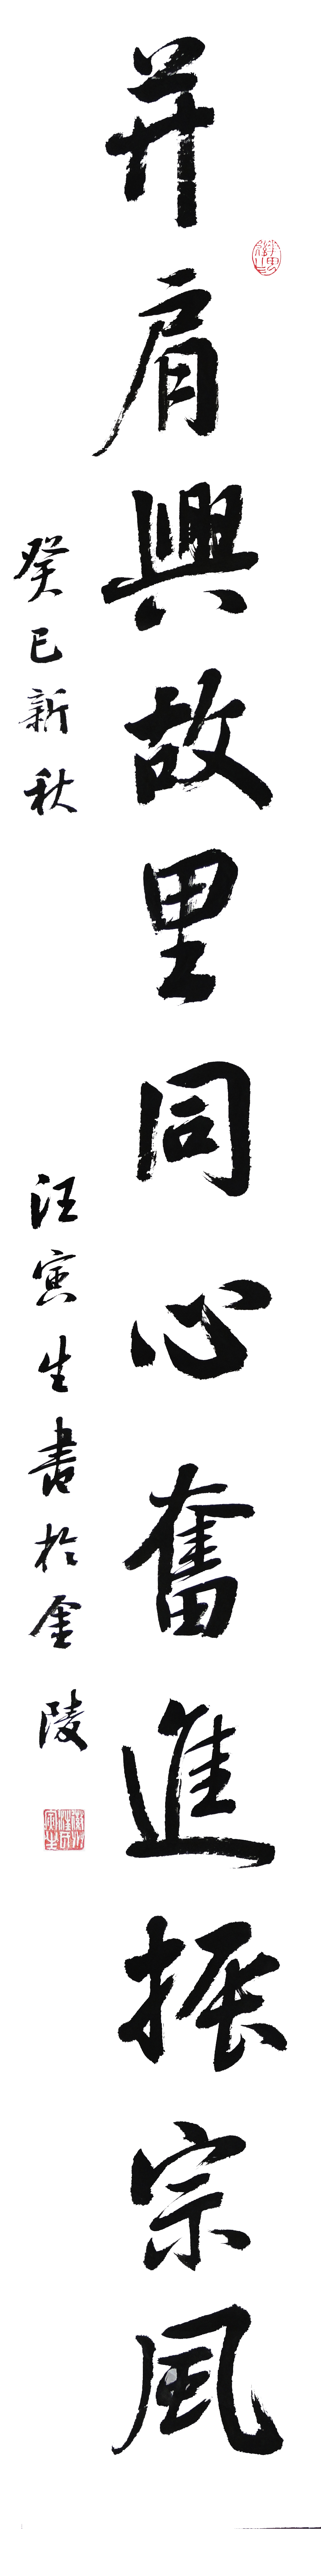 并肩興故里同心奮進振宗風
癸巳新秋 汪寅生書於金陵